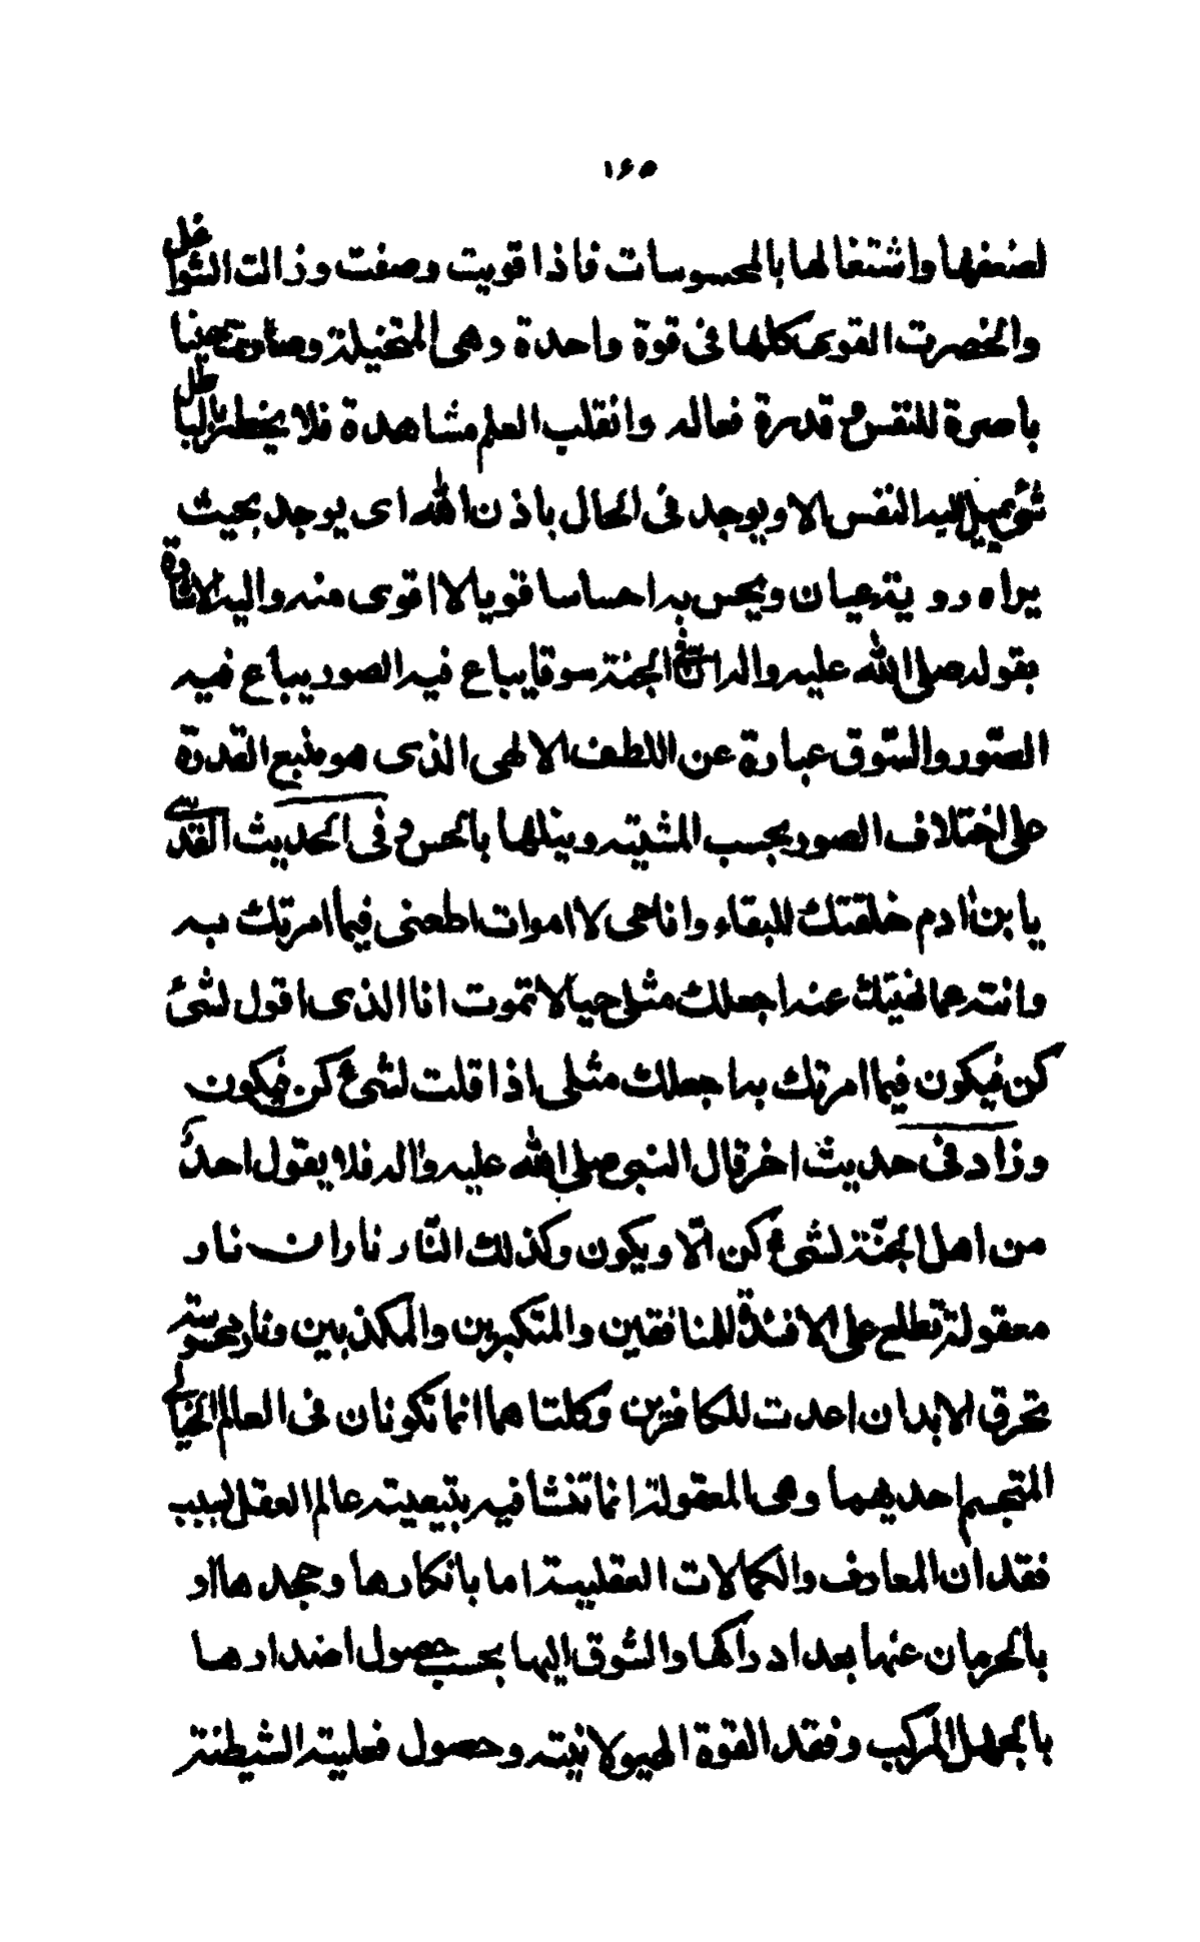 ۱۶۵
لضعفها واشتغالها بالمحسوسات فاذا قويت وصفت وزالت الشواغل
وانحصرت القوى كلها فى قوة واحدة وهى المتخيلة وصارت عينا
باصرة للنفس و قدرة فعالة وانقلب العلم مشاهدة فلا يخطر بالبال
شئ يميل اليه النفس الا ويوجد فى الحال باذن الله اى يوجد بحيث
يراه رؤية عيان ويحس به احساسا قويا لا اقوى منه واليه الاشارة
بقوله صلى الله عليه واله ان فى الجنة سوقا يباع فيه الصور يباع فيه
الصّور والسّوق عبارة عن اللطف الالهى الذى هو منبع القدرة
على اختلاف الصور بحسب المشيّة وينلها بالحس و فى الحديث القدسى
يا بن ادم خلقتك للبقاء وانا حى لا اموات اطعنى فيما امرتك به
وانته عما نهيتك عنه اجعلك مثلى حيا لا تموت انا الذى اقول لشئ
كن فيكون فيما امرتك به اجعلك مثلى اذا قلت لشئ كن فيكون
وزاد فى حديث اخر قال النبى صلى الله عليه واله فلا يقول احدٌ
من اهل الجنّة لشئ كن الّا ويكون وكذلك النّار ناران نار
معقولة تطلع على الافئدة للمنافقين والمتكبرين والمكذبين ونار محسوسة
تحرق الابدان اعدت للكافرين وكلتاهما انما تكونان فى العالم الخيالى
المتجسم احديهما وهى المعقولة انما تنشا فيه بتبعيته عالم العقل لسبب
فقدان المعارف والكمالات العقلية اما بانكارها وجحدها او
بالحرمان عنها بعد ادراكها والشوق اليها بحسب حصول اضدارها
بالجهل المركب وفقد القوة الهيولانيّه وحصول فعلية الشيطنة